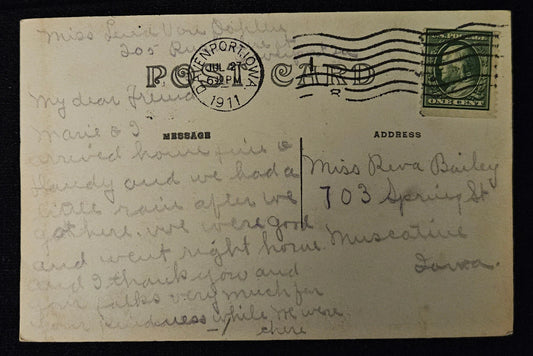 Miss
205
DAVENPORT, IOWA
JUL 27
6 PM
1911
U.S. POSTAGE
ONE CENT
POST CARD
My dear Friend
MESSAGE
Marie & I
arrived home fine &
dandy and we had a
little rain after we
got here. We were good
and went right home.
and I thank you and
your folks very much for
your kindness while we were
there
ADDRESS
Miss Reva Bailey
703 Spring St
Muscatine
Iowa.